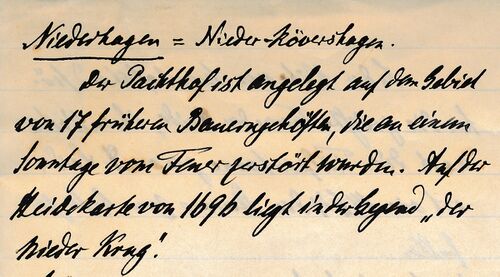 Niederhagen = Nieder-Rövershagen.
Der Pachthof ist angelegt auf dem Gebiet
von 17 früheren Bauerngehöften, die an einem
Sonntage vom Feuer zerstört wurden. Auf der
Heidekarte von 1696 liegt in der Gegend „der
Nieder Krug".